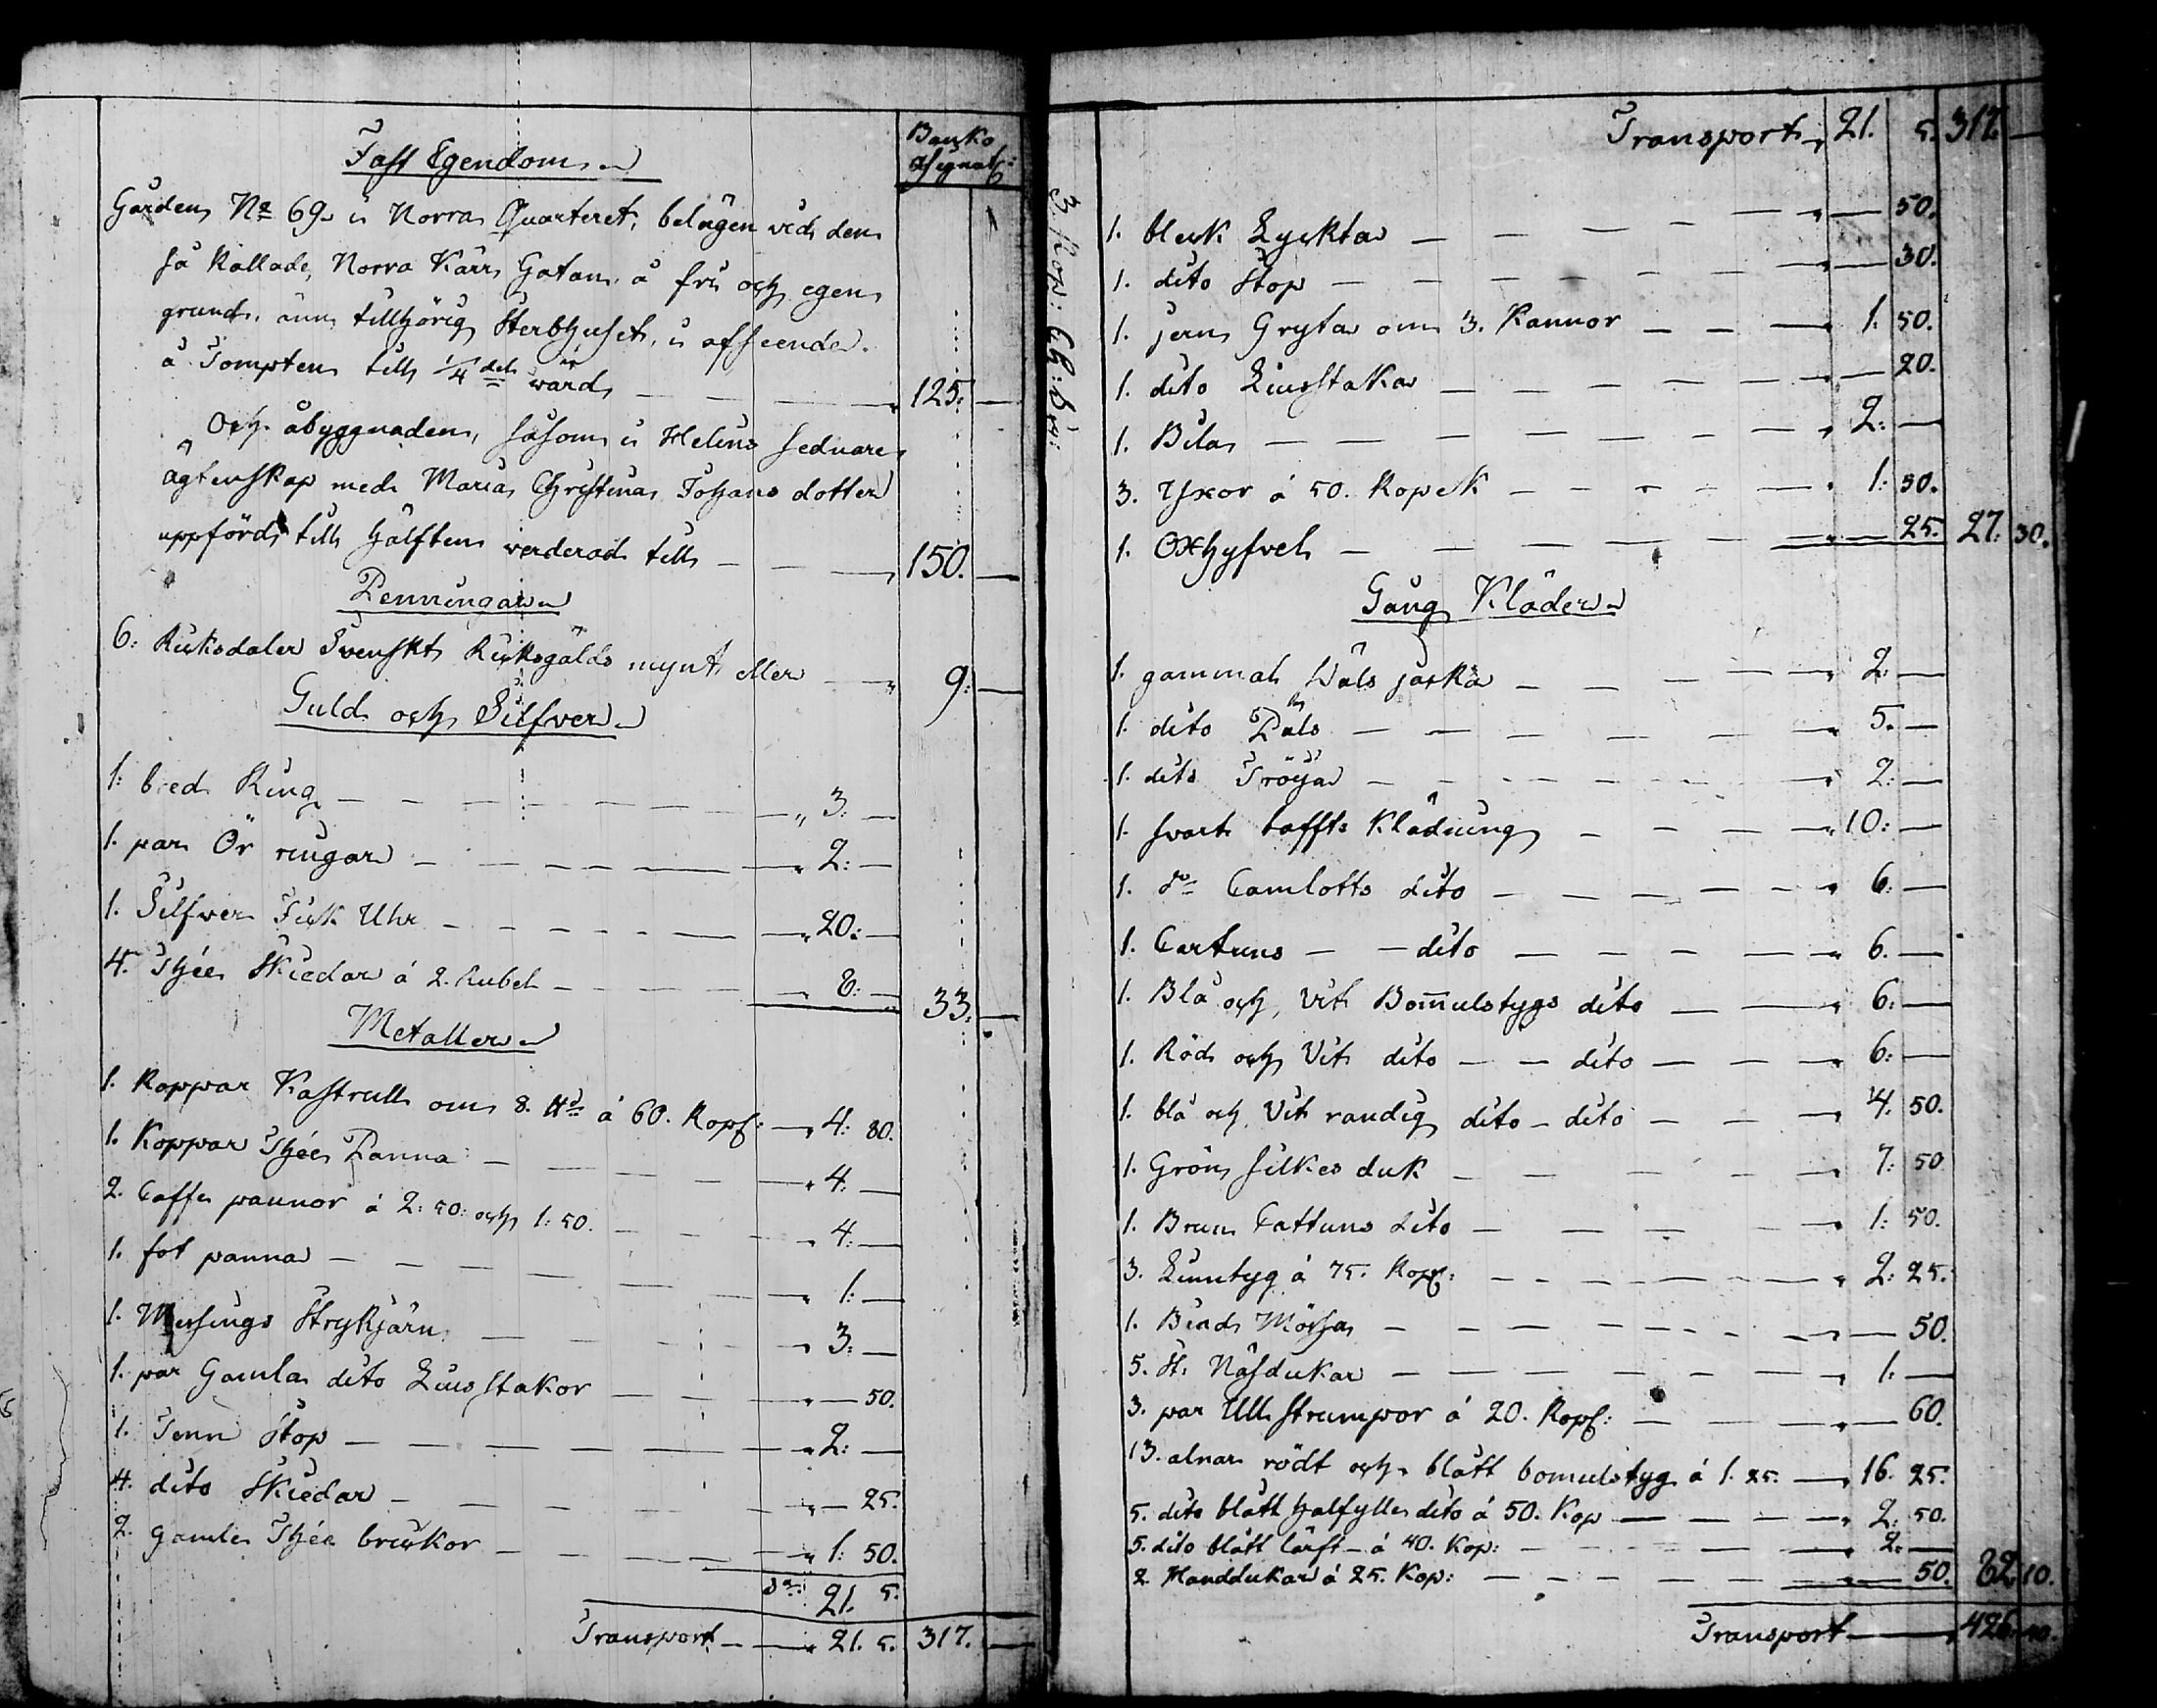 Banko
Assignat:
Fast Egendom.
Gården N° 69. i Norra Quarteret, belägen vid den
så kallade, Norra Kärr Gatan, å fri och egen
grund, ännu tillhörig Sterbhuset, i afseende
å Tompten till 1/4 del är värd — 125: —
Och åbyggnaden, såsom i Helins sednare
ägtenskap med Maria Christina Johans dotter
uppförd, till hälften verderad till — 150. —
Penningar
6: Riksdaler Svenskt Riksgälds mynt eller — 9: —
Guld och Silfver
1: bred Ring — 3: —
1. par Ör ringar — 2: —
1. Silfver Fick Uhr — 20: —
4. Thée Skiedar á 2. Rubel — 8: — 33: —
Metaller
1. Koppar Kastrull om 8. ℔ á 60. Kop: — 4: 80.
1. Koppar Thée Panna — 4: —
2. Caffe pannor á 2: 50: och 1: 50. — 4: —
1. fot panna — 1: —
1. Messings Strykjärn — 3: —
1. par Gamla dito Liusstakor — 50.
1. Tenn Stop — 2: —
4. dito Skiedar — 25.
2. gamla Thée brickor — 1: 50.
S:a 21. 5.
Transport — 21. 5. 317. —
3. Kop: Ch: Sig:
Transport, 21. 5. 317. —
1. bleck Lyckta — 50.
1. dito Stop — 30.
1. jern Gryta om 3. Kannor — 1: 50.
1. dito Liusstaka — 20.
1. Bila — 2: —
3. Yxor á 50. Kopek — 1: 50.
1. Oxhyfvel — 25. 27: 30.
Gång Kläder
1. gammal Wals jacka — 2: —
1. dito Päls — 5. —
1. dito Tröija — 2: —
1. svart taffts Klädning — 10: —
1. d:o Camlotts dito — 6: —
1. Cartuns — dito — 6. —
1. Blå och Vit Bom̅ulstygs dito — 6: —
1. Röd och Vit dito — dito — 6: —
1. blå och Vit randig dito — dito — 4. 50.
1. Grön silkes duk — 7: 50
1. Brun Cattuns dito — 1: 50.
3. Linntyg á 75. Kop: — 2: 25.
1. Bind Mössa — 50.
5. st. Näsdukar — 1. —
3. par Ull strumpor á 20. Kop: — 60.
13. alnar rödt och blått bomulstyg á 1. 25. — 16. 25.
5. dito blått halfylle dito á 50. Kop — 2. 50.
5. dito blått lärft — á 40. Kop: — 2. —
2 Handdukar á 25. Kop: — 50. 82. 10.
Transport — 426. 40.